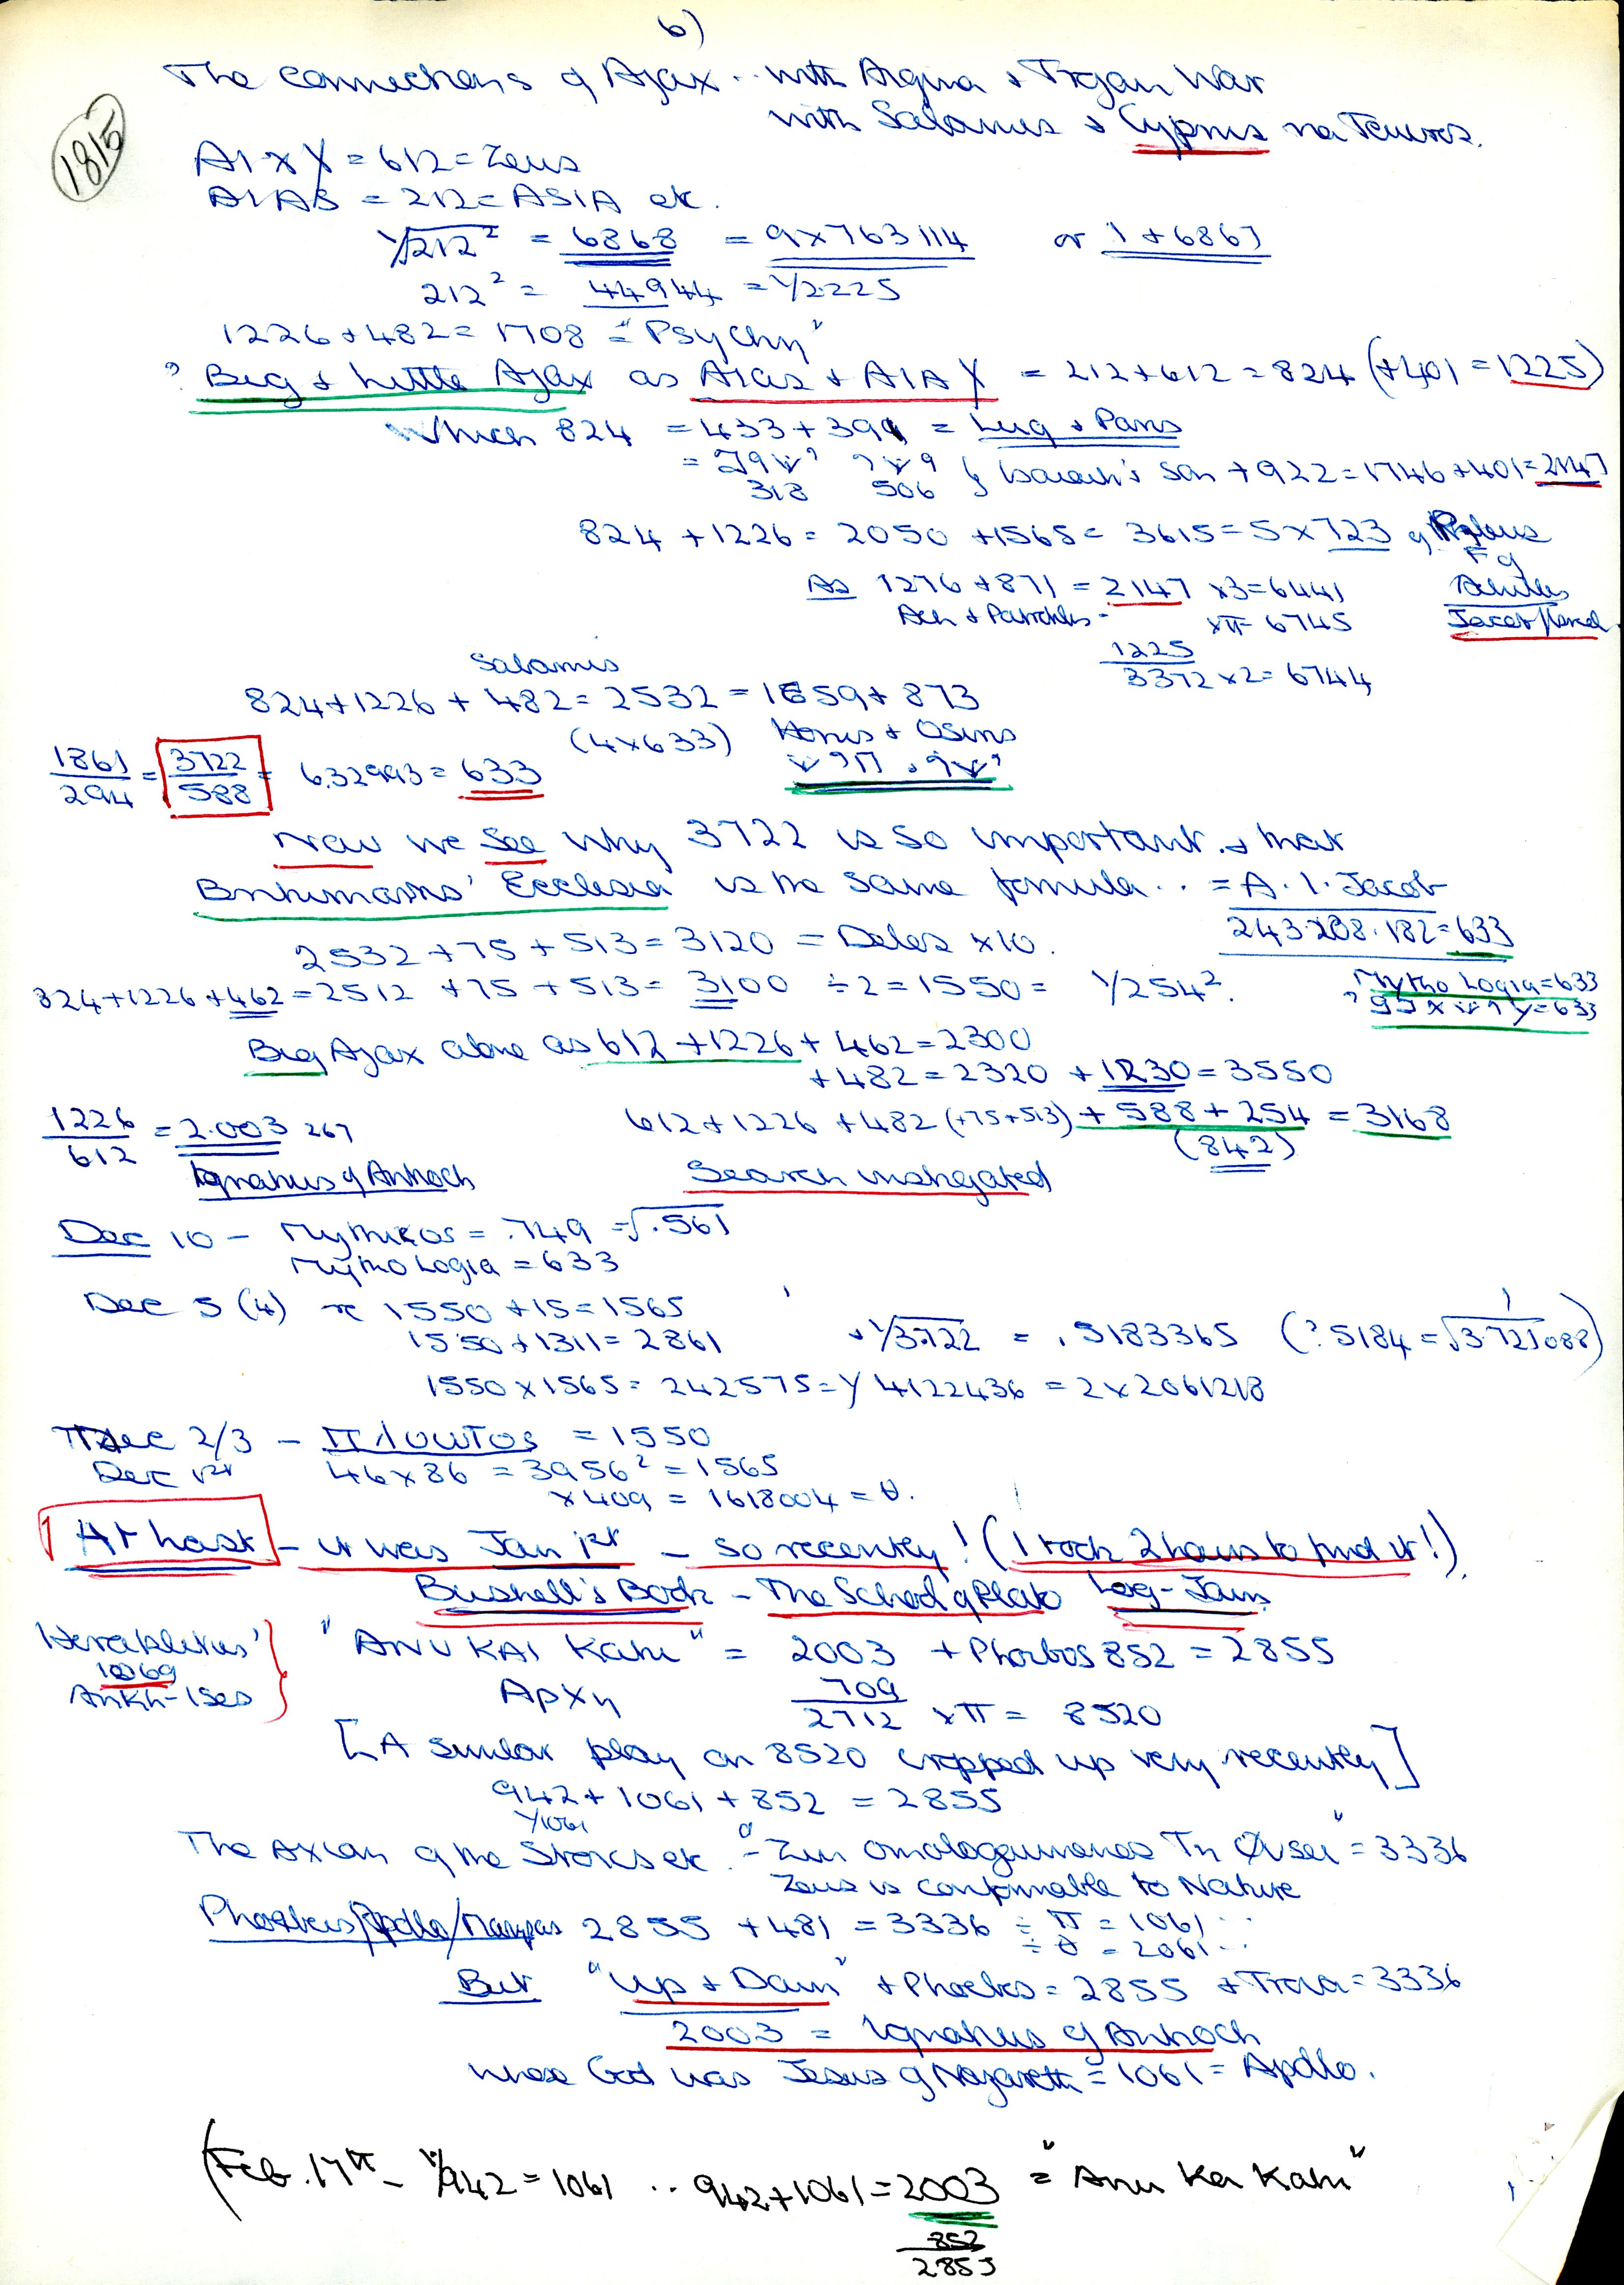 6)
The connections of Ajax .. with Aegina & Trojan War
with Salamis & Cyprus via Teucros.
1815
= 612 = Zeus
AIAS = 212 = ASIA etc.
1/√212² = 6868 = 9x763114 or 1+6867
212² = 44944 = 1/2225
1226+482 = 1708 = "Psychn"
? Big & Little Ajax as Aias + AIAX = 212+612 = 824 (+401 = 1225)
Which 824 = 433+391 = Lug & Paris
318 506 Isaiah's son +922=1746+401=2147
824 + 1226 = 2050 + 1565 = 3615 = 5x723 of Peleus
F of
As 1276 + 871 = 2147 x3 = 6441 Achilles
Ach & Patroklos x π 6745
1225
3372 x2 = 6744
Salamis
824+1226 + 482 = 2532 = 1659+ 873
(4x633) Horus + Osiris
1861/294 = 3722/588 = 6.32993 = 633
Now we see why 3722 is so important . & that
'Ecclesia' is the same formula .. = A. I. Jacob
243.208.182=633
2532 + 75 + 513 = 3120 = Delos x10.
824+1226+462=2512 +75 +513= 3100 ÷2=1550= 1/254².
Mytho Logia=633
=633
Big Ajax alone as 612 +1226+ 462=2300
+482=2320 +1230=3550
1226/612 = 2.003 267
612+1226 +482 (+75+513) + 588 + 254 = 3168
(842)
Ignatius of Antioch
Search instigated
Dec 10 - Mythicos = .749 = √.561
Mytho Logia = 633
Dec 5 (4) 1550 +15=1565
1550+1311= 2861
1/√3.722 = .5183365 (? 5184 = 1/√3.721088)
1550x1565= 242575=1/4122436 = 2x2061218
Dec 2/3 - Πλουτος = 1550
Dec 1st 46x86 = 3956² = 1565
x409 = 1618004 = θ.
At last - it was Jan 1st - so recently! (I took 2 hours to find it!).
Bushell's Book - The School of Plato Log-Jam
Herakleitus' "ANU KAI Kate" = 2003 + Phoibos 852 = 2855
1069
Ankh-Ises
Apxη 709
2712 xπ = 8520
[A similar play on 8520 cropped up very recently]
942+1061+852 = 2855
1/1061
The Axiom of the Stoics etc. "Zen omologoumenos Tn Qusei" = 3336
Zeus is conformable to Nature
2855 + 481 = 3336 ÷ π = 1061 ..
÷ θ = 2061 ..
But "Up & Down" + Phoebos = 2855 + Troia = 3336
2003 = Ignatius of Antioch
whose God was Jesus of Nazareth = 1061 = Apollo.
(Feb. 17th - 1/942 = 1061 .. 942+1061 = 2003 = "Anu Kai Kato"
852
2855